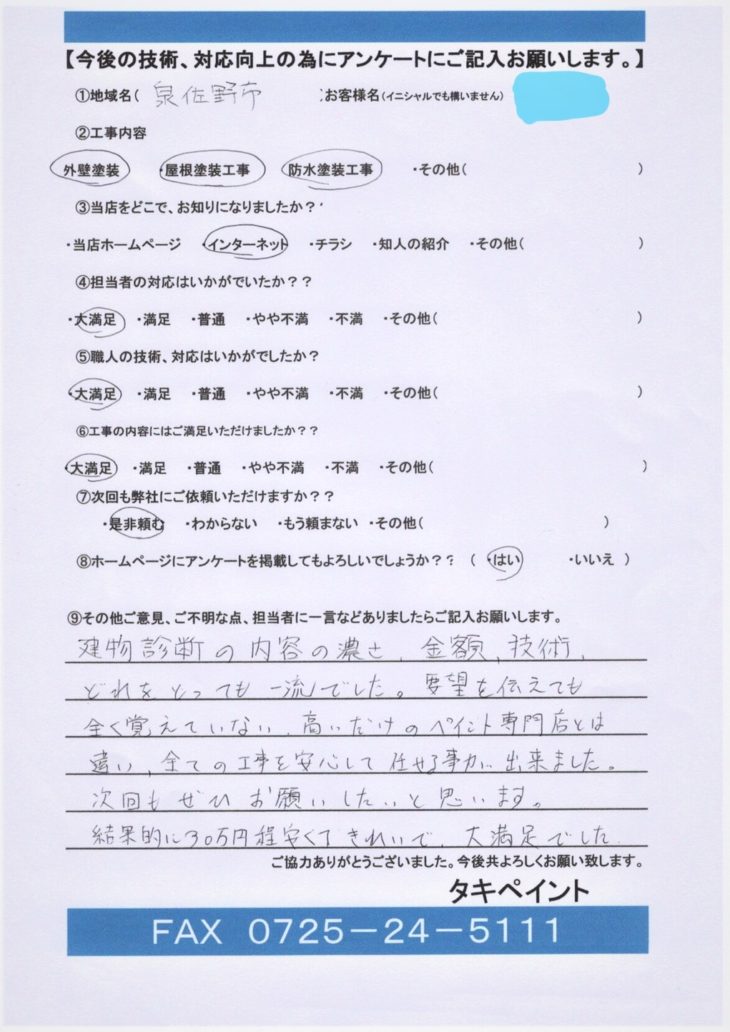 【今後の技術、対応向上の為にアンケートにご記入お願いします。】
①地域名( 泉佐野市 )お客様名(イニシャルでも構いません)
②工事内容
外壁塗装 ・屋根塗装工事 防水塗装工事 ・その他( )
③当店をどこで、お知りになりましたか？
・当店ホームページ ・インターネット ・チラシ ・知人の紹介 ・その他( )
④担当者の対応はいかがでいたか？？
・大満足 ・満足 ・普通 ・やや不満 ・不満 ・その他( )
⑤職人の技術、対応はいかがでしたか？
・大満足 ・満足 ・普通 ・やや不満 ・不満 ・その他( )
⑥工事の内容にはご満足いただけましたか？？
・大満足 ・満足 ・普通 ・やや不満 ・不満 ・その他( )
⑦次回も弊社にご依頼いただけますか？？
・是非頼む ・わからない ・もう頼まない ・その他( )
⑧ホームページにアンケートを掲載してもよろしいでしょうか？？ ( ・はい ・いいえ )
⑨その他ご意見、ご不明な点、担当者に一言などありましたらご記入お願いします。
建物診断の内容の濃さ、金額、技術、
どれをとっても一流でした。要望を伝えても
全く覚えていない、高いだけのペイント専門店とは
違い、全ての工事を安心して任せる事が出来ました。
次回もぜひお願いしたいと思います。
結果的に30万円程安くてきれいで、大満足でした
ご協力ありがとうございました。今後共よろしくお願い致します。
タキペイント
FAX 0725－24－5111